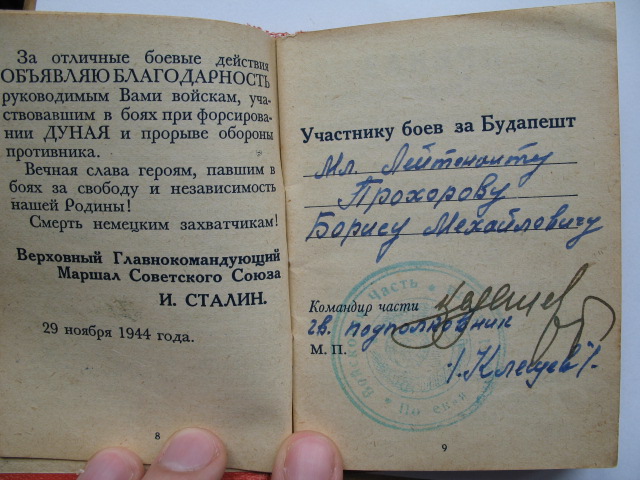 За отличные боевые действия
ОБЪЯВЛЯЮ БЛАГОДАРНОСТЬ
руководимым Вами войскам, уча-
ствовавшим в боях при форсирова-
нии ДУНАЯ и прорыве обороны
противника.
Вечная слава героям, павшим в
боях за свободу и независимость
нашей Родины!
Смерть немецким захватчикам!
Верховный Главнокомандующий
Маршал Советского Союза
И. СТАЛИН.
29 ноября 1944 года.
8
Участнику боев за Будапешт
Мл. Лейтенанту
Прохорову
Борису Мехайловичу
Командир части
гв. подполковник
М. П.
/Клещев/.
Часть
9